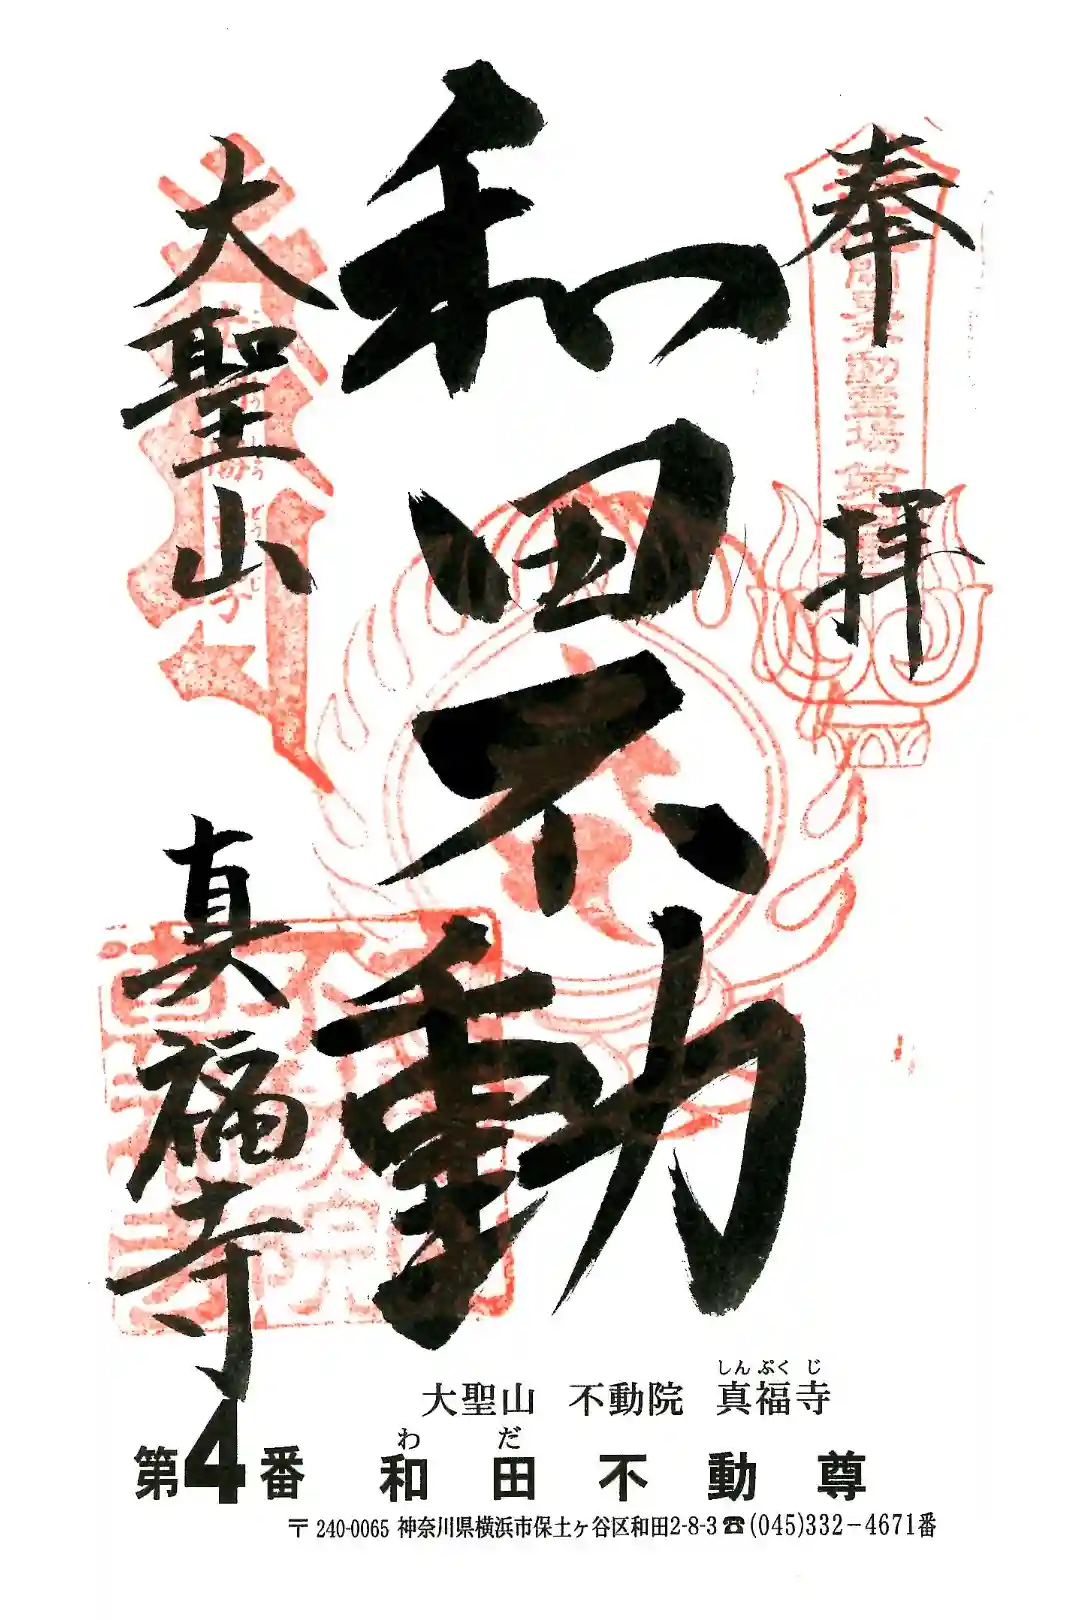 奉拝
和田不動
大聖山
真福寺
しんぷくじ
大聖山 不動院 真福寺
わだ
第4番 和田不動尊
〒240-0065 神奈川県横浜市保土ヶ谷区和田2-8-3☎(045)332-4671番